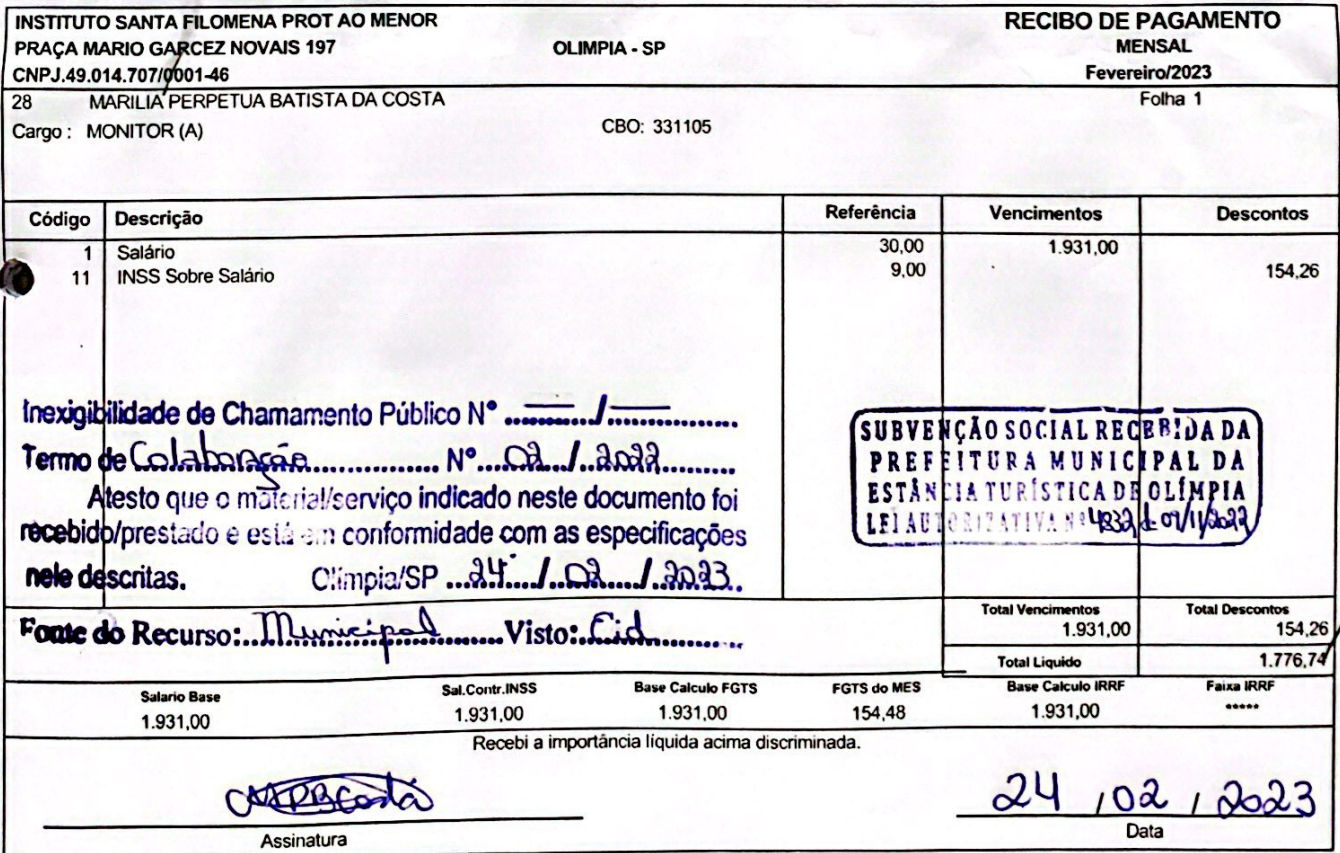 INSTITUTO SANTA FILOMENA PROT AO MENOR
RECIBO DE PAGAMENTO
PRAÇA MARIO GARCEZ NOVAIS 197 OLIMPIA - SP MENSAL
CNPJ.49.014.707/0001-46 Fevereiro/2023
28 MARILIA PERPETUA BATISTA DA COSTA Folha 1
Cargo : MONITOR (A) CBO: 331105
Código Descrição Referência Vencimentos Descontos
1 Salário 30,00 1.931,00
11 INSS Sobre Salário 9,00 154,26
Inexigibilidade de Chamamento Público Nº ......../........
Termo de Colaboração Nº 02 / 2022
Atesto que o material/serviço indicado neste documento foi
recebido/prestado e está em conformidade com as especificações
nele descritas. Olímpia/SP 24 / 02 / 2023
SUBVENÇÃO SOCIAL RECEBIDA DA
PREFEITURA MUNICIPAL DA
ESTÂNCIA TURÍSTICA DE OLÍMPIA
LEI AUTORIZATIVA Nº 4832 de 01/11/2022
Fonte do Recurso: Municipal Visto: Cid
Total Vencimentos Total Descontos
1.931,00 154,26
Total Liquido 1.776,74
Salario Base Sal.Contr.INSS Base Calculo FGTS FGTS do MES Base Calculo IRRF Faixa IRRF
1.931,00 1.931,00 1.931,00 154,48 1.931,00 *****
Recebi a importância líquida acima discriminada.
MPBCosta
24 / 02 / 2023
Assinatura Data